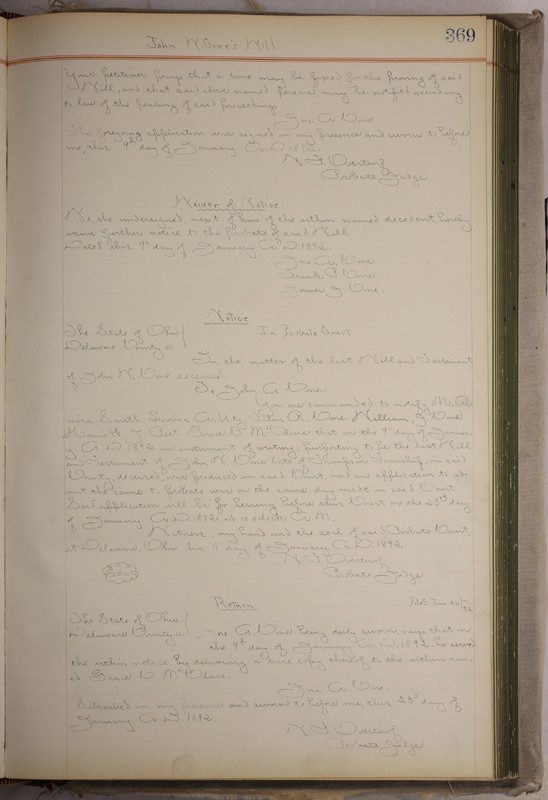 369
John W. Cone's Will
Your petitioner prays that a time may be fixed for the proving of said
Will, and that said above named persons may be notified according
to law of the pending of said proceedings.
Jno. A. Cone
The foregoing application was signed in my presence and sworn to before
me, this 9th day of January A.D. 1892.
N. F. Overturf
Probate Judge
Waiver of Notice
We, the undersigned, next of kin of the within named decedent, hereby
waive further notice to the probate of said Will
Dated this 9" day of January A.D. 1892.
Jno. A. Cone
Frank Cone
James Cone.
Notice
The State of Ohio
Delaware County ss
In Probate Court
In the matter of the last Will and Testament
of John W. Cone deceased.
To John A. Cone:
You are commanded to notify
Smith, A. R. Cone William Cone
Grace McClure that on the 9" day of Janua
y A.D. 1892 an instrument of writing, purporting to be the last Will
and Testament of John W. Cone late of Thompson Township in said
County, deceased, was produced in said Court, and an application to ad-
mit the same to probate was on the same day made in said Court.
Said application will be for hearing before this Court on the 23rd day
of January A.D. 1892, at 10 o'clock A.M.
Witness, my hand and the seal of said Probate Court,
at Delaware, Ohio this 9" day of January A.D. 1892.
N. F. Overturf
Probate Judge
Return
Filed Jan
The State of Ohio
Delaware County ss.
Jno. A. Cone being duly sworn, says that on
the 9th day of January A.D. 1892, he served
the within notice by delivering a true copy thereof to the within nam-
ed Grace McClure.
Jno. A. Cone.
Subscribed in my presence and sworn to before me, this 23rd day of
January A.D. 1892.
N. F. Overturf
Probate Judge